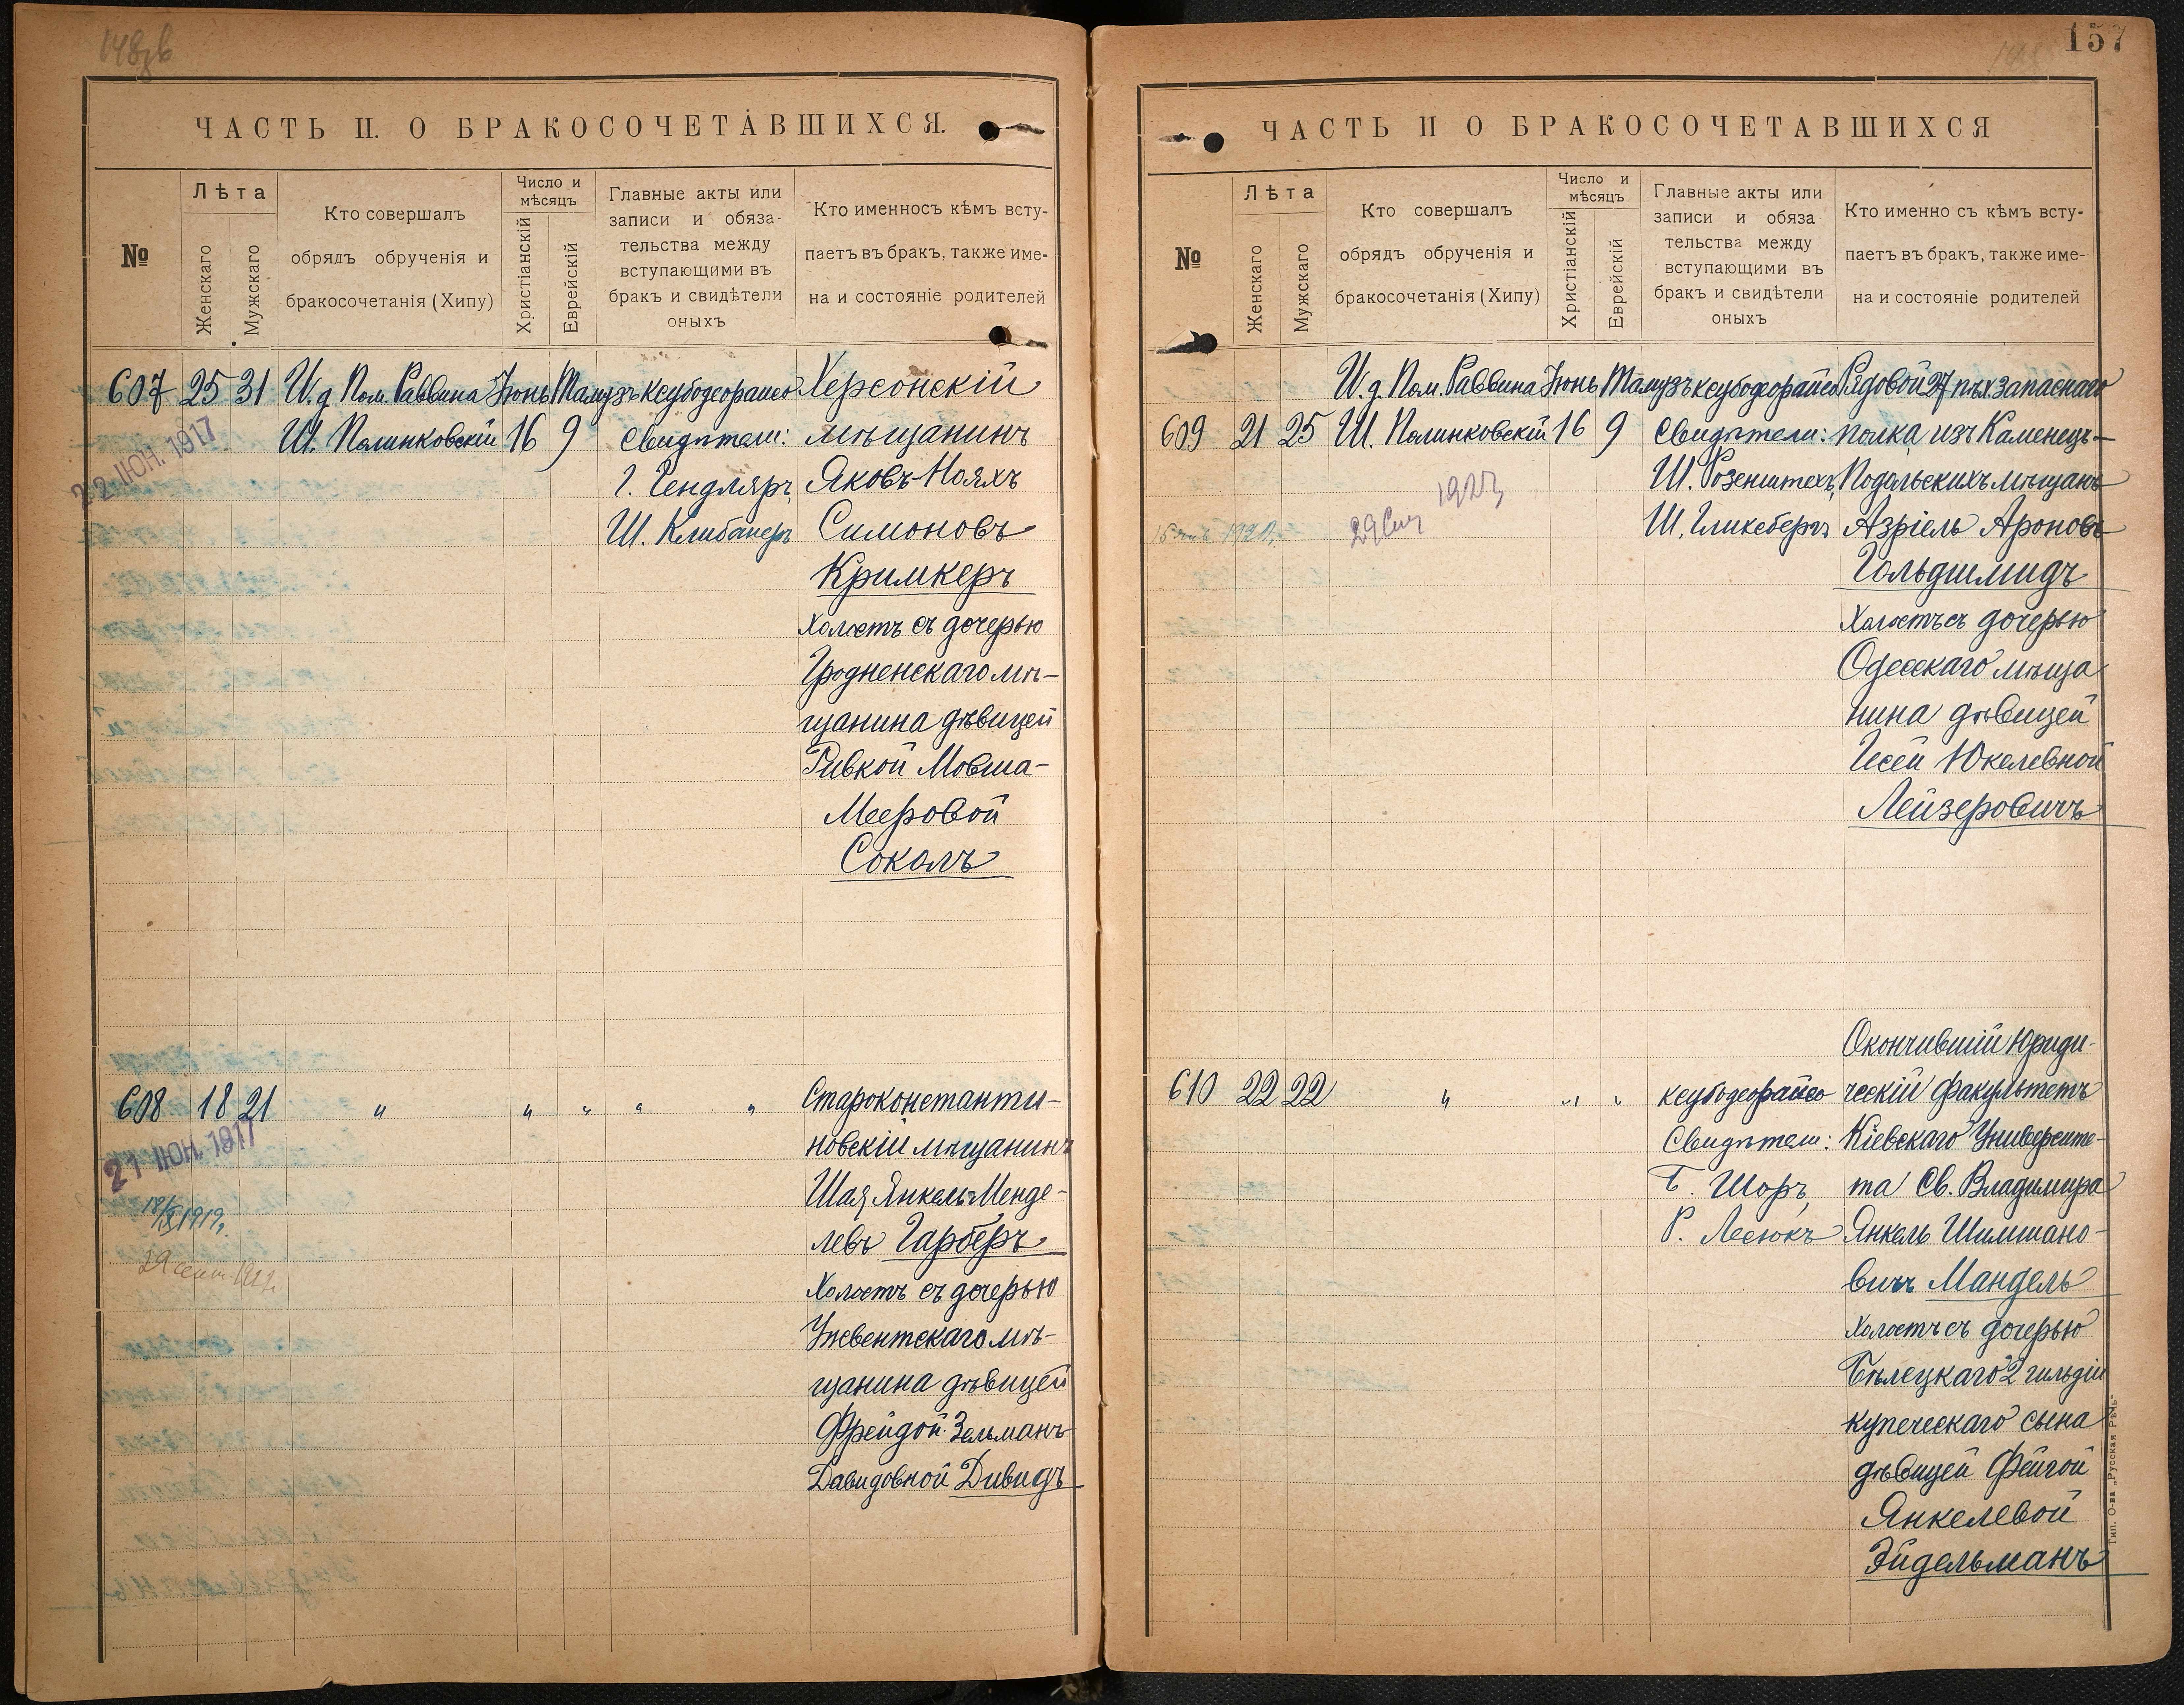 157
ЧАСТЬ II. О БРАКОСОЧЕТАВШИХСЯ.
№
Лѣта
Женскаго
Мужскаго
Кто совершалъ
обрядъ обрученія и
бракосочетанія (Хипу)
Число и
мѣсяцъ
Христіанскій
Еврейскій
Главные акты или
записи и обяза-
тельства между
вступающими въ
бракъ и свидѣтели
оныхъ
Кто именносъ кѣмъ всту-
паетъ въ бракъ, также име-
на и состояніе родителей
607 25 31 И.д. Пом. Раввина Іюнь Тамузъ ксубодеорайсо Херсонскій
22 ІЮН. 1917 Ш. Полинковскій 16 9 Свидѣтели: мѣщанинъ
Г. Гендляръ, Яковъ-Нояхъ
Ш. Клибанеръ Симоновъ
Кримкеръ
Холостъ съ дочерью
Гродненскаго мѣ-
щанина дѣвицей
Ривкой Мовша-
Мееровой
Соколъ
608 18 21 " " " " " Староконстанти-
21 ІЮН. 1917 новскій мѣщанинъ
Шая Янкель-Менде-
левъ Гарберъ
Холостъ съ дочерью
Ужвентскаго мѣ-
щанина дѣвицей
Фрейдой-Зельманъ-
Давидовной Дивидъ
ЧАСТЬ II О БРАКОСОЧЕТАВШИХСЯ
№
Лѣта
Женскаго
Мужскаго
Кто совершалъ
обрядъ обрученія и
бракосочетанія (Хипу)
Число и
мѣсяцъ
Христіанскій
Еврейскій
Главные акты или
записи и обяза
тельства между
вступающими въ
бракъ и свидѣтели
оныхъ
Кто именно съ кѣмъ всту-
паетъ въ бракъ, также име-
на и состояніе родителей
И.д. Пом. Раввина Іюнь Тамузъ ксубодеорайсо Рядовой 27 пѣх. запаснаго
609 21 25 Ш. Полинковскій 16 9 Свидѣтели: полка, изъ Каменецъ-
Ш. Розенштехъ, Подольскихъ мѣщанъ
Ш. Гликсбергъ Азріель Ароновъ
Гольдшмидъ
Холостъ съ дочерью
Одесскаго мѣща
нина дѣвицей
Гесей Юкелевной
Лейзеровичъ
Окончившій Юриди-
610 22 22 " " " ксубодеорайсо ческій факультетъ
Свидѣтели: Кіевскаго Университе-
Б. Шоръ, та Св. Владимира
Р. Лесюкъ Янкель Шимшано-
вичъ Мандель
Холостъ съ дочерью
Бѣлецкаго 2 гильдіи
купеческаго сына
дѣвицей Фейгой
Янкелевой
Эйдельманъ
Тип. О-ва „Русская Рѣчь"